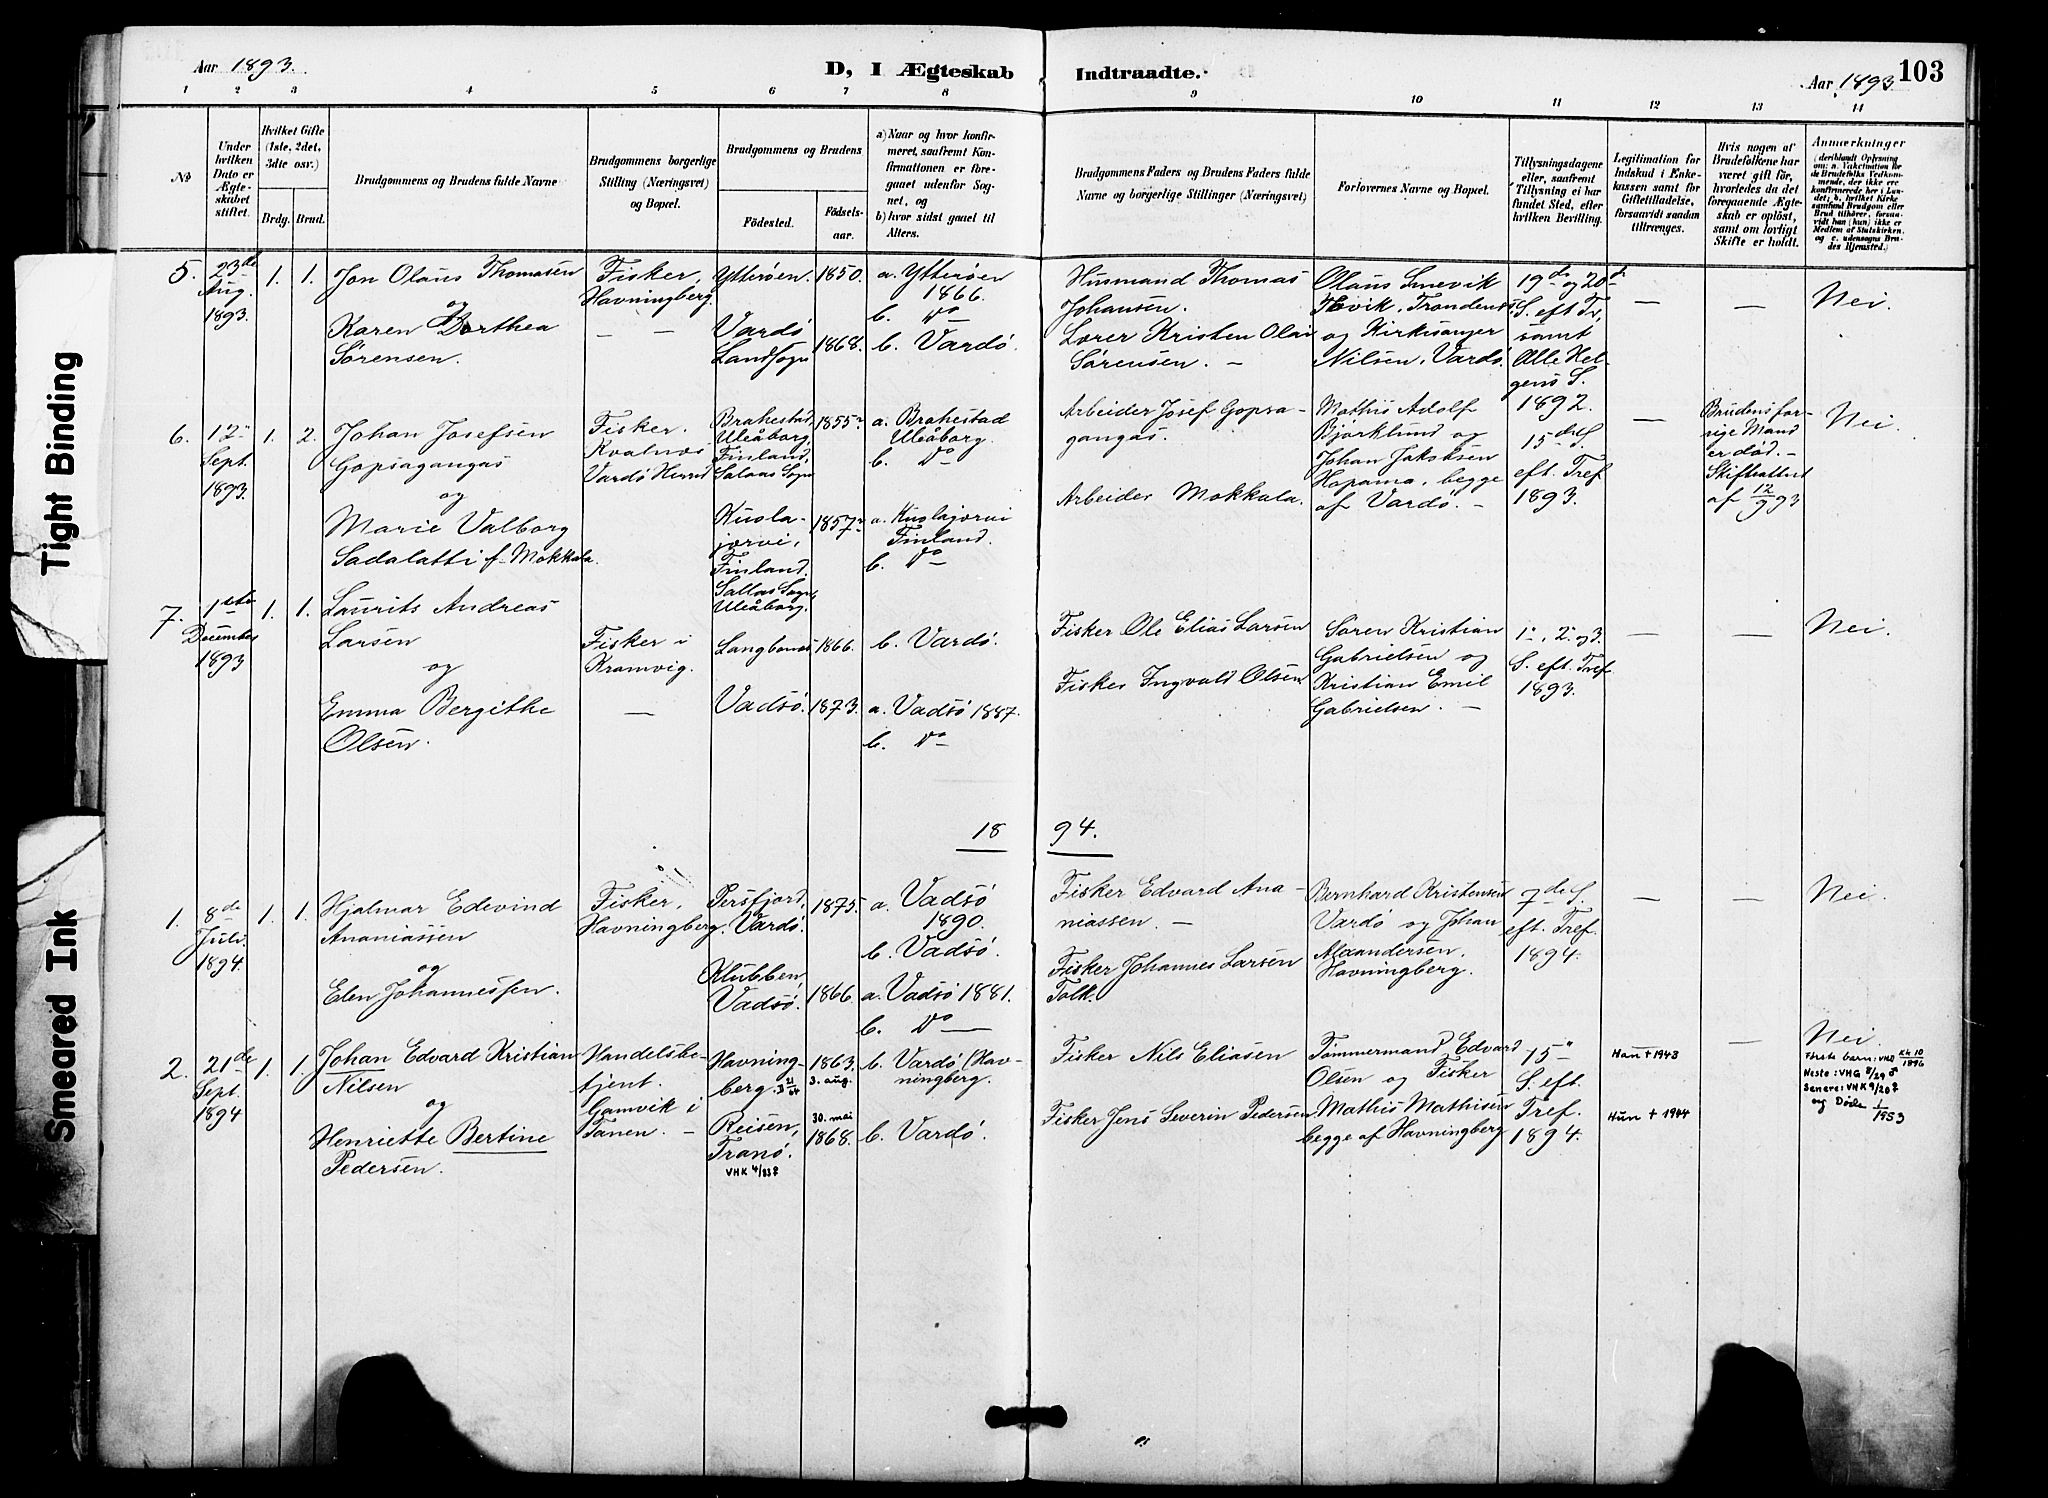 Aar 1893.
D, I Ægteskab
Indtraadte.
Aar 1893
103
1 2 3 4 5 6 7 8 9 10 11 12 13 14
No
Under hvilken Dato er Ægteskabet stiftet.
Hvilket Gifte (1ste, 2det, 3dte osv.)
Brdg. Brud.
Brudgommens og Brudens fulde Navne
Brudgommens borgerlige Stilling (Næringsvei) og Bopæl.
Brudgommens og Brudens
Födested.
Födsels-aar.
a) Naar og hvor konfirmeret, saafremt Konfirmationen er foregaaet udenfor Sognet, og
b) hvor sidst gaaet til Alters.
Brudgommens Faders og Brudens Faders fulde Navne og borgerlige Stillinger (Næringsvei)
Forlovernes Navne og Bopæl.
Tillysningsdagene eller, saafremt Tillysning ei har fundet Sted, efter hvilken Bevilling.
Legitimation for Indskud i Enkekassen samt for Giftetilladelse, forsaavidt saadan tiltrænges.
Hvis nogen af Brudefolkene har været gift för, hvorledes da det foregaaende Ægteskab er oplöst, samt om lovligt Skifte er holdt.
Anmærkninger
5.
23de Aug. 1893.
1. 1.
Jon Olaus Thomasen
og
Karen Dorthea
Sörensen.
Fisker,
Havningberg.
— —
Ytteröen.
Vardö
Landsogn
1850.
1868.
a. Ytteröen
1866.
b. Do
b. Vardö.
Husmand Thomas
Johansen.
Lærer Kristen Olai
Sörensen. —
Olaus Smevik
Trondenes
og Kirkesanger
Nilsen, Vardö.
19de og 20de
S. eft Tr,
samt
Alle Hel-
gens S.
1892.
—
—
Nei.
6.
12te
Sept.
1893.
1. 2.
Johan Josefsen
Gopsagangas
og
Marie Valborg
Sadalatti f. Mokkala
Fisker.
Kvalnes
Vardö Herred
Brahestad,
Uleåborg,
Finland,
Salaas Sogn
Kuola-
jervi,
Finland,
Sallas Sogn,
Uleåborg.
1855
1857
a. Brahestad
Uleåborg.
b. Do
a. Kuolajervi
Finland.
b. Do
Arbeider Josef Gopsa-
gangas.
Arbeider Mokkala.
Mathis Adolf
Björklund og
Johan Jakobsen
Hopama, begge
af Vardö. —
15de S.
eft. Tref
1893.
—
Brudens for-
rige Mand
er död. —
Skifteattest
af 12/9 93
Nei.
7.
1ste
December
1893
1. 1.
Laurits Andreas
Larsen
og
Emma Bergithe
Olsen.
Fisker i
Kramvig.
—
Langbunes
Vadsö.
1866.
1873.
b. Vardö.
a. Vadsö 1887.
b. Do
Fisker Ole Elias Larsen
Fisker Ingvald Olsen
Sören Kristian
Gabrielsen og
Kristian Emil
Gabrielsen. —
1., 2. og 3.
S. eft. Tref
1893.
—
—
Nei.
18 94.
1.
8de
Juli.
1894.
1. 1.
Hjalmar Edevind
Ananiassen
og
Elen Johannessen.
Fisker,
Havningberg.
Persfjord,
Vardö.
Klubben,
Vadsö.
1875.
1866.
a. Vadsö
1890.
b. Vadsö.
a. Vadsö 1881.
b. Do —
Fisker Edvard Ana-
niassen. —
Fisker Johannes Larsen
Tolk.
Bernhard Kristensen
Vardö og Johan
Alexandersen,
Havningberg.
7de S.
eft. Tref.
1894.
—
—
Nei.
2.
21de
Sept.
1894
1. 1.
Johan Edvard Kristian
Nilsen
og
Henriette Bertine
Pedersen.
Handelsbe-
tjent.
Gamvik i
Tanen. —
Havning-
berg.
Reisen,
Tranö.
VHK 4/83♀
1863.
3. aug.
30. mai
1868.
b. Vardö (Hav-
ningberg.
b. Vardö.
Fisker Nils Eliasen
Fisker Jens Severin Pedersen
Tömmermand Edvard
Olsen og Fisker
Mathis Mathisen
begge af Havningberg.
15de
S. eft
Tref.
1894.
Han † 1943
Hun † 1944
—
Nei.
Første barn: VHD KK 10/1896
Neste: VHG 8/29 ♂
Senere: VHK 9/20 ♀
og Döde 1/1953
Tight Binding
Smeared Ink